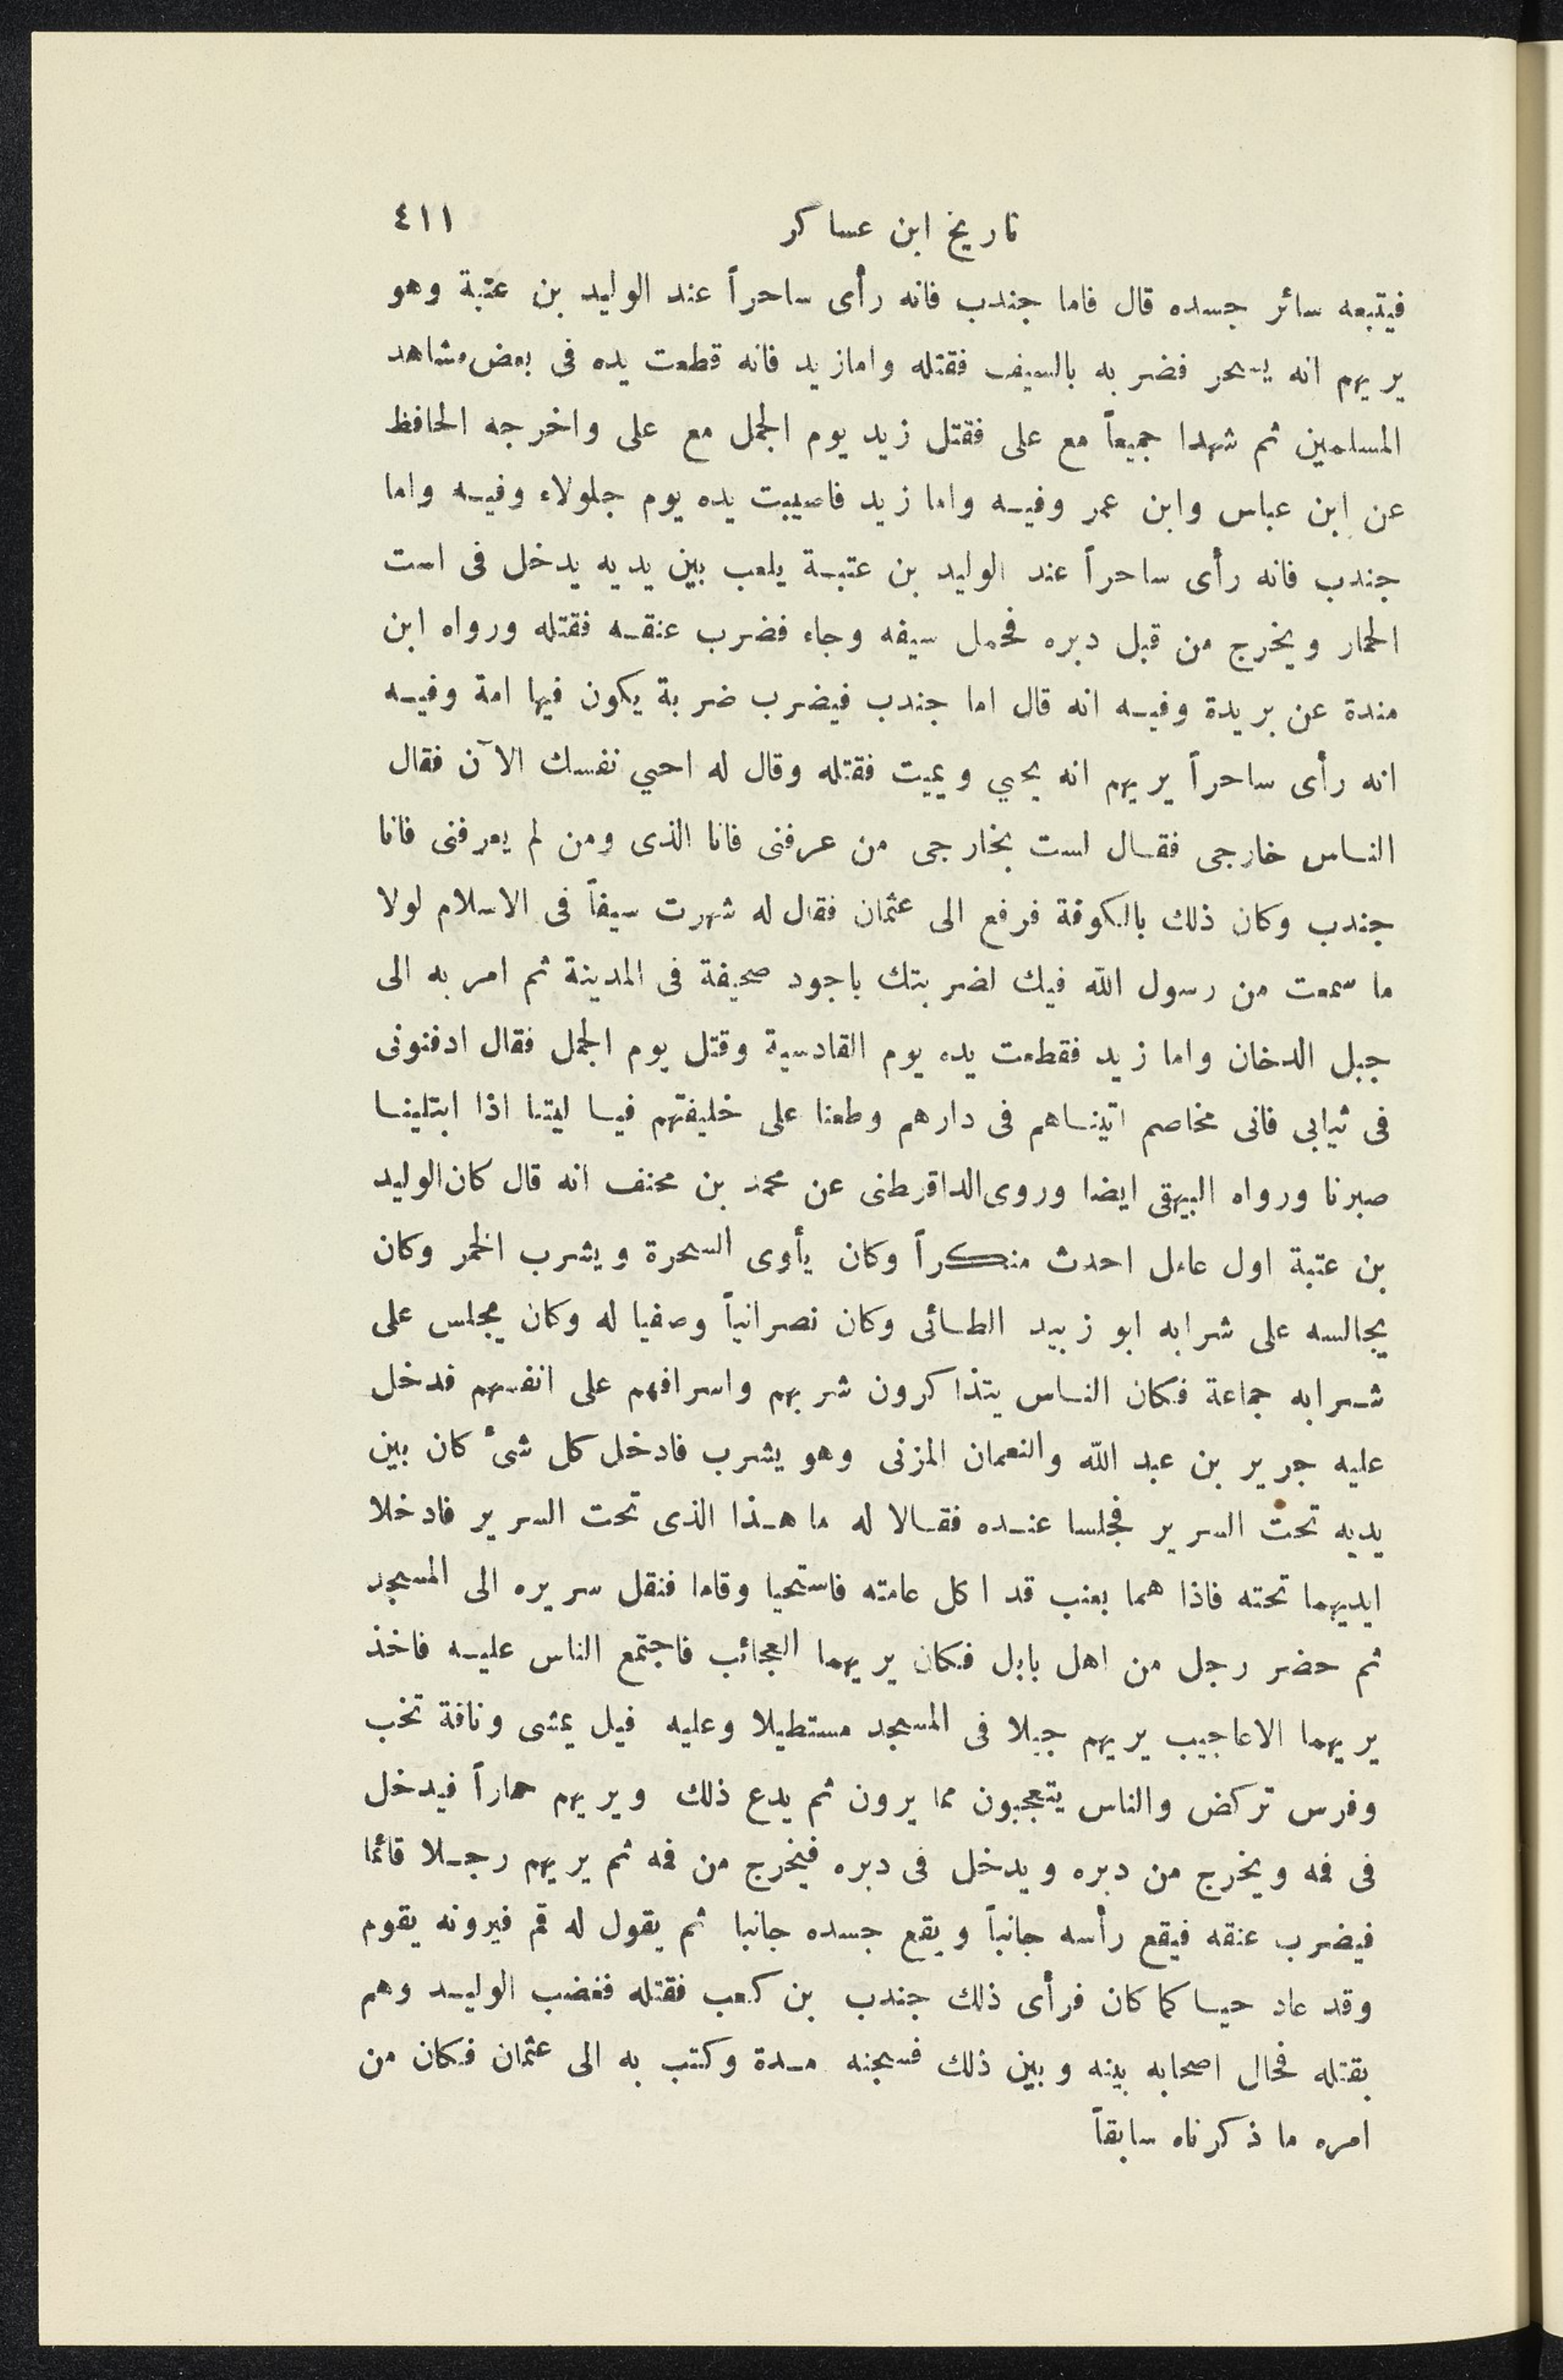 تاريخ ابن عساكر ٤١١
فيتبعه سائر جسده قال فاما جندب فانه رأى ساحراً عند الوليد بن عتبة وهو
يريهم انه يسحر فضربه بالسيف فقتله واما زيد فانه قطعت يده فى بعض مشاهد
المسلمين ثم شهدا جميعاً مع على فقتل زيد يوم الجمل مع على واخرجه الحافظ
عن ابن عباس وابن عمر وفيه واما زيد فاصيبت يده يوم جلولاء وفيه واما
جندب فانه رأى ساحراً عند الوليد بن عتبة يلعب بين يديه يدخل فى است
الحمار ويخرج من قبل دبره فحمل سيفه وجاء فضرب عنقه فقتله ورواه ابن
مندة عن بريدة وفيه انه قال اما جندب فيضرب ضربة يكون فيها امة وفيه
انه رأى ساحراً يريهم انه يحيي ويميت فقتله وقال له احيي نفسك الآن فقال
الناس خارجى فقال لست بخارجى من عرفنى فانا الذى ومن لم يعرفنى فانا
جندب وكان ذلك بالكوفة فرفع الى عثمان فقال له شهرت سيفاً فى الاسلام لولا
ما سمعت من رسول الله فيك لضربتك باجود صحيفة فى المدينة ثم امر به الى
جبل الدخان واما زيد فقطعت يده يوم القادسية وقتل يوم الجمل فقال ادفنونى
فى ثيابى فانى مخاصم اتيناهم فى دارهم وطعنا على خليفتهم فيا ليتنا اذا ابتلينا
صبرنا ورواه البيهقى ايضا وروى الداقرطنى عن محمد بن محنف انه قال كان الوليد
بن عتبة اول عامل احدث منكراً وكان يأوى السحرة ويشرب الخمر وكان
يجالسه على شرابه ابو زبيد الطائى وكان نصرانياً وصفيا له وكان يجلس على
شرابه جماعة فكان الناس يتذاكرون شربهم واسرافهم على انفسهم فدخل
عليه جرير بن عبد الله والنعمان المزنى وهو يشرب فادخل كل شئ كان بين
يديه تحت السرير فجلسا عنده فقالا له ما هذا الذى تحت السرير فادخلا
ايديهما تحته فاذا هما بعنب قد اكل عامته فاستحيا وقاما فنقل سريره الى المسجد
ثم حضر رجل من اهل بابل فكان يريهما العجائب فاجتمع الناس عليه فاخذ
يريهما الاعاجيب يريهم جبلا فى المسجد مستطيلا وعليه فيل يمشى وناقة تخب
وفرس تركض والناس يتعجبون مما يرون ثم يدع ذلك ويريهم حماراً فيدخل
فى فمه ويخرج من دبره ويدخل فى دبره فيخرج من فمه ثم يريهم رجلا قائما
فيضرب عنقه فيقع رأسه جانباً ويقع جسده جانبا ثم يقول له قم فيرونه يقوم
وقد عاد حيا كما كان فرأى ذلك جندب بن كعب فقتله فغضب الوليد وهم
بقتله فحال اصحابه بينه وبين ذلك فسجنه مدة وكتب به الى عثمان فكان من
امره ما ذكرناه سابقاً